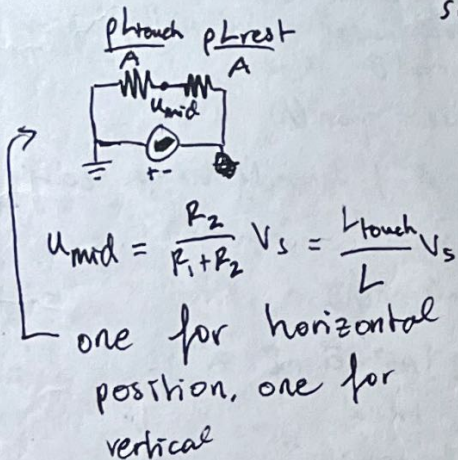 ρLtouch/A ρLrest/A
Umid
+ -
Umid = R2/(R1+R2) Vs = Ltouch/L Vs
one for horizontal
position, one for
vertical